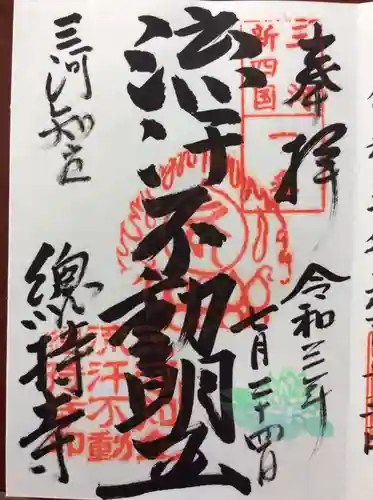 奉拝
令和三年
七月二十四日
三河
新四国
一番
流汗不動明王
流汗不動
三河知立
總持寺